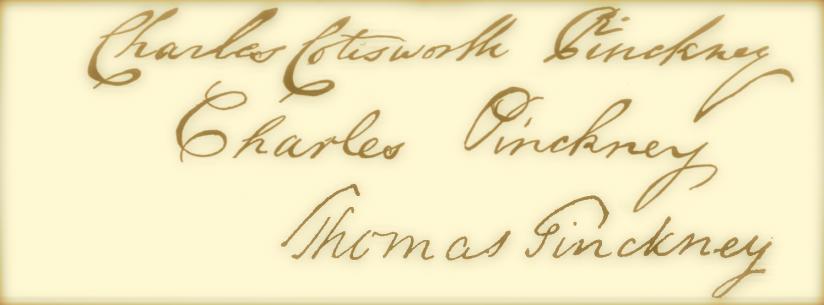 Charles Cotesworth Pinckney
Charles Pinckney
Thomas Pinckney